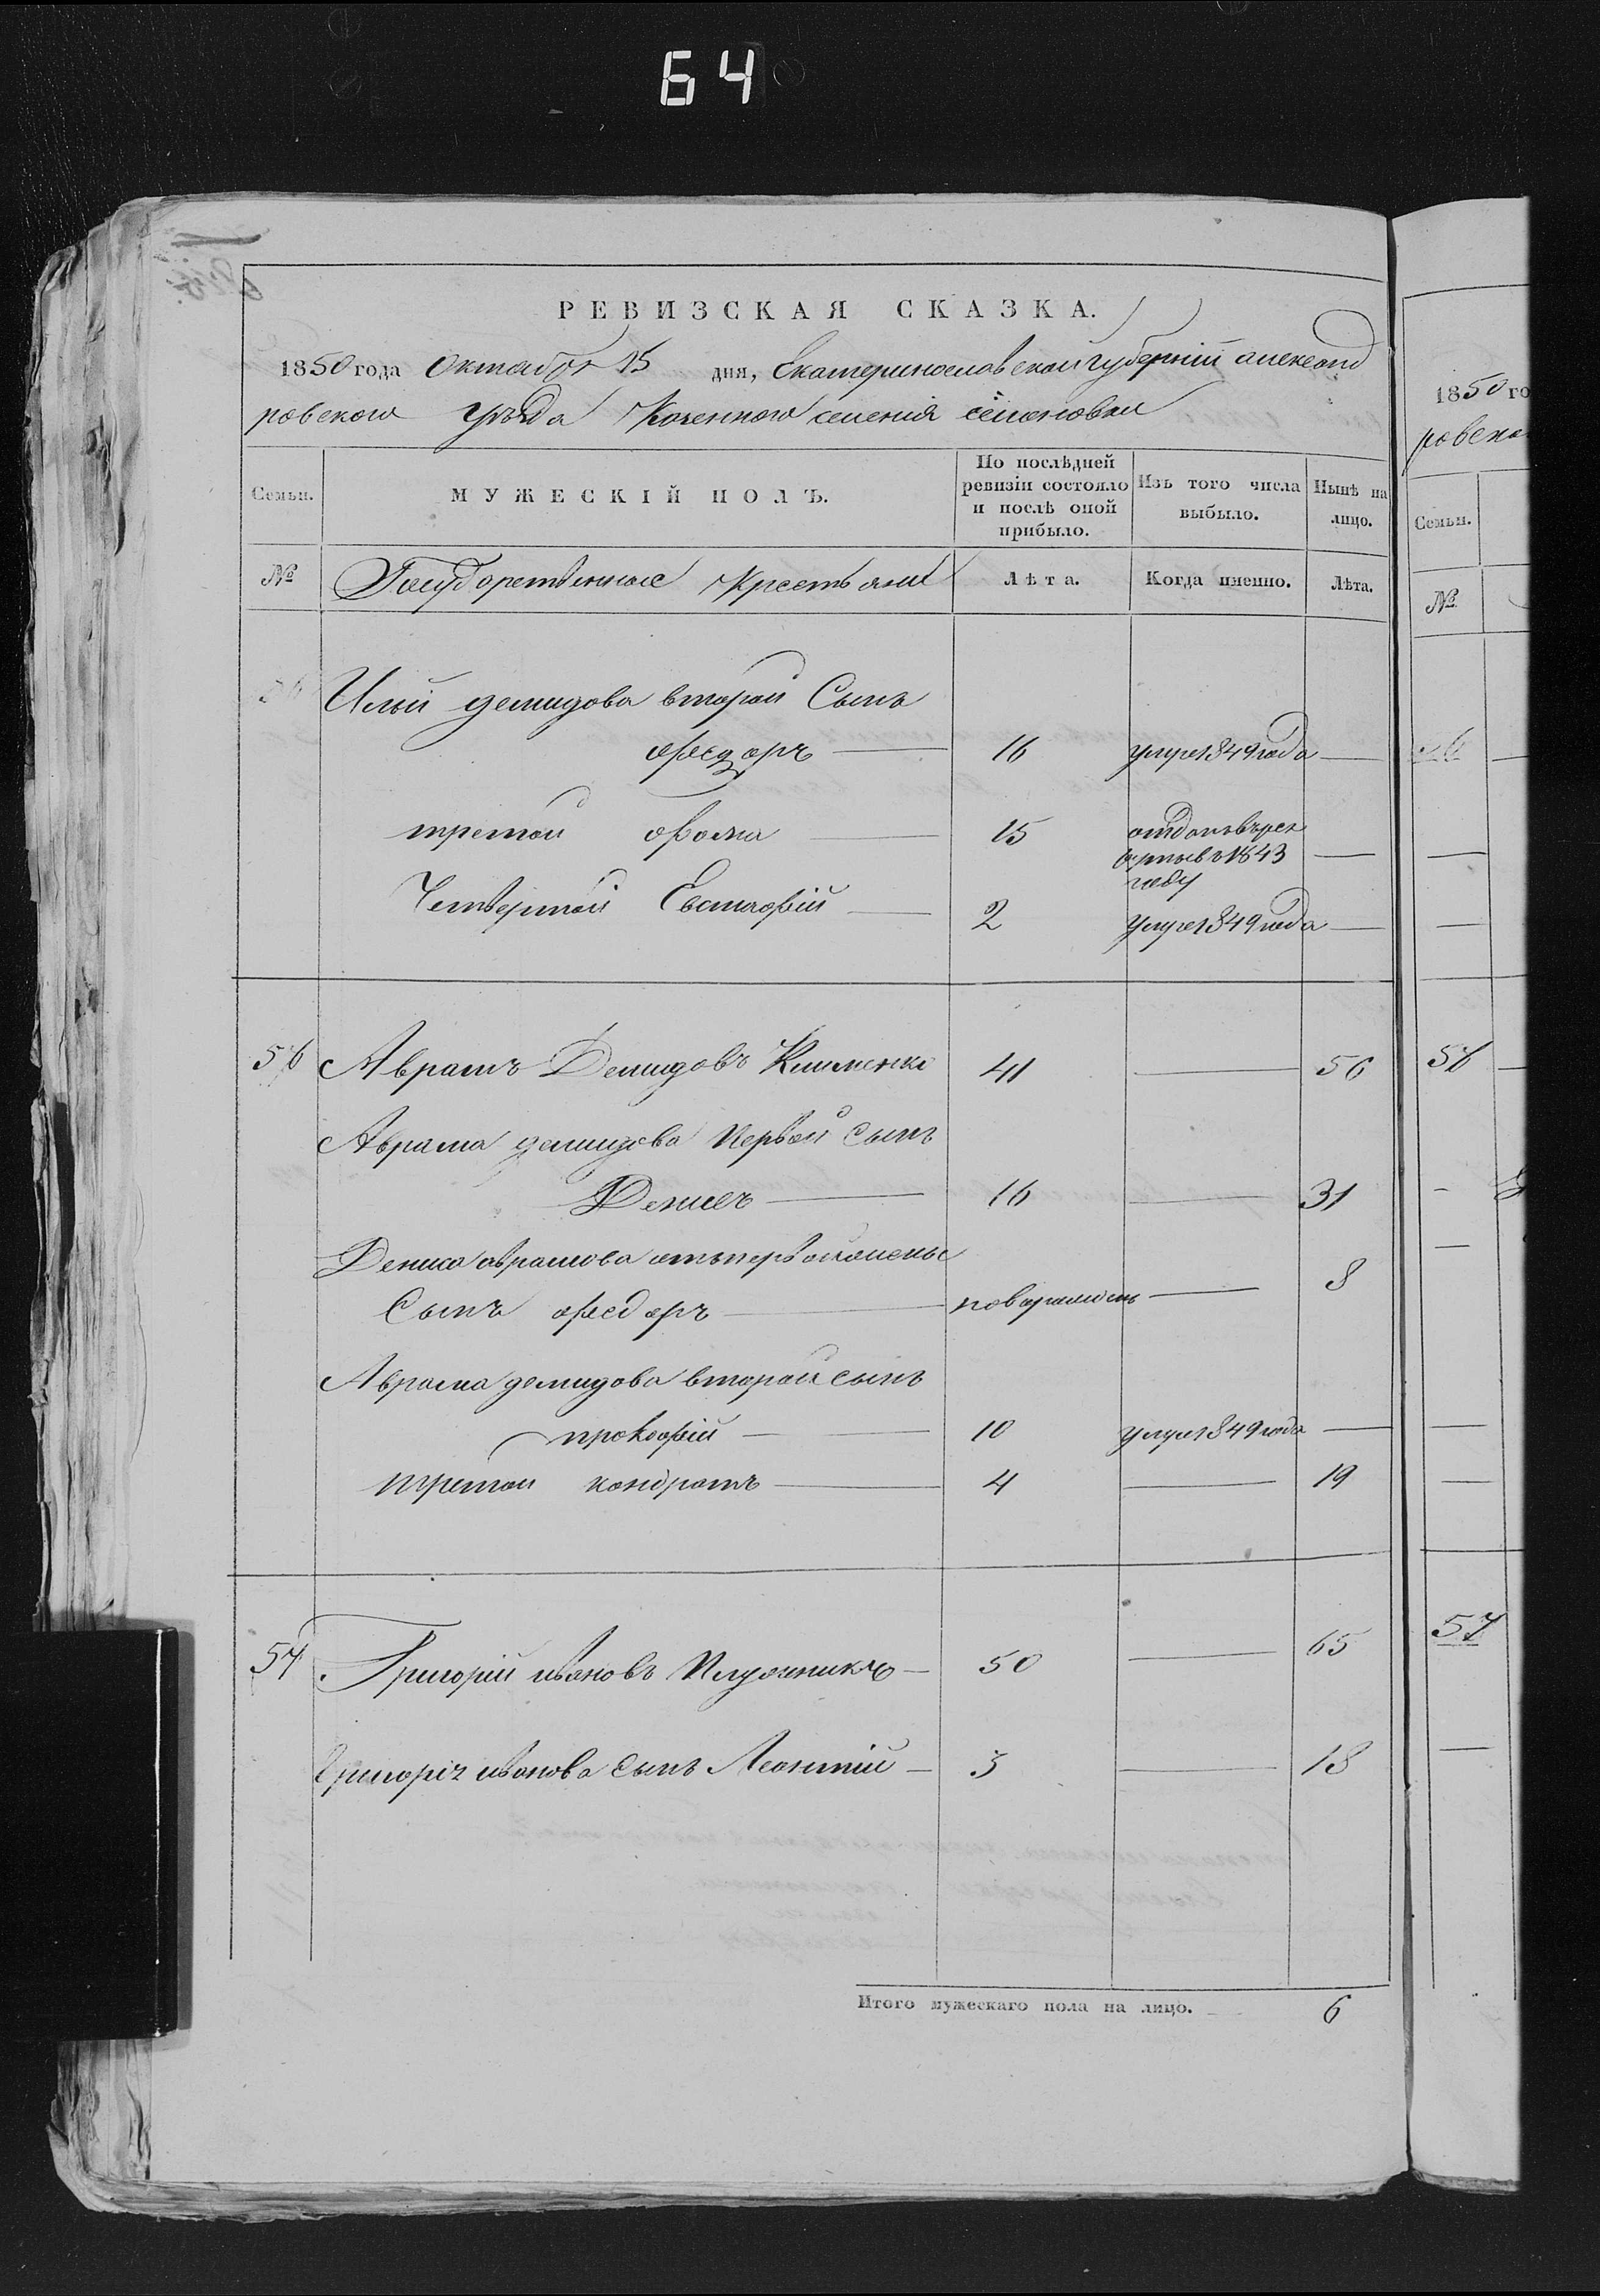 64
РЕВИЗСКАЯ СКАЗКА.
1850 года Октября 15 дня, Екатеринославской губерніи александ
ровского уѣзда Козенного селенія семеновки
Семьи.
МУЖЕСКІЙ ПОЛЪ.
По послѣдней ревизіи состояло и послѣ оной прибыло.
Изъ того числа выбыло.
Нынѣ на лицо.
№ Государственные Крестьяне Лѣта. Когда именно. Лѣта.
Ильи демидова второй Сынъ
ѳедоръ 16 умре 1849 года
третой ѳома 15 отданъ въ рек
руты въ 1843
году
Четвертой Евстафій 2 умре 1849 года
56 Аврамъ Демидовъ Клименко 41 56
Аврама демидова Первой Сынъ
Денисъ 16 31
Дениса аврамова отъ первой жены
Сынъ ѳедоръ новорожден 8
Аврама демидова второй сынъ
прокофій 10 умре 1849 года
третой кондратъ 4 19
57 Григорій ивановъ Плужникъ 50 65
Григорія иванова сынъ Леонтій 3 18
Итого мужескаго пола на лицо. 6
1850 го
ровско
Семьи.
№
56
57